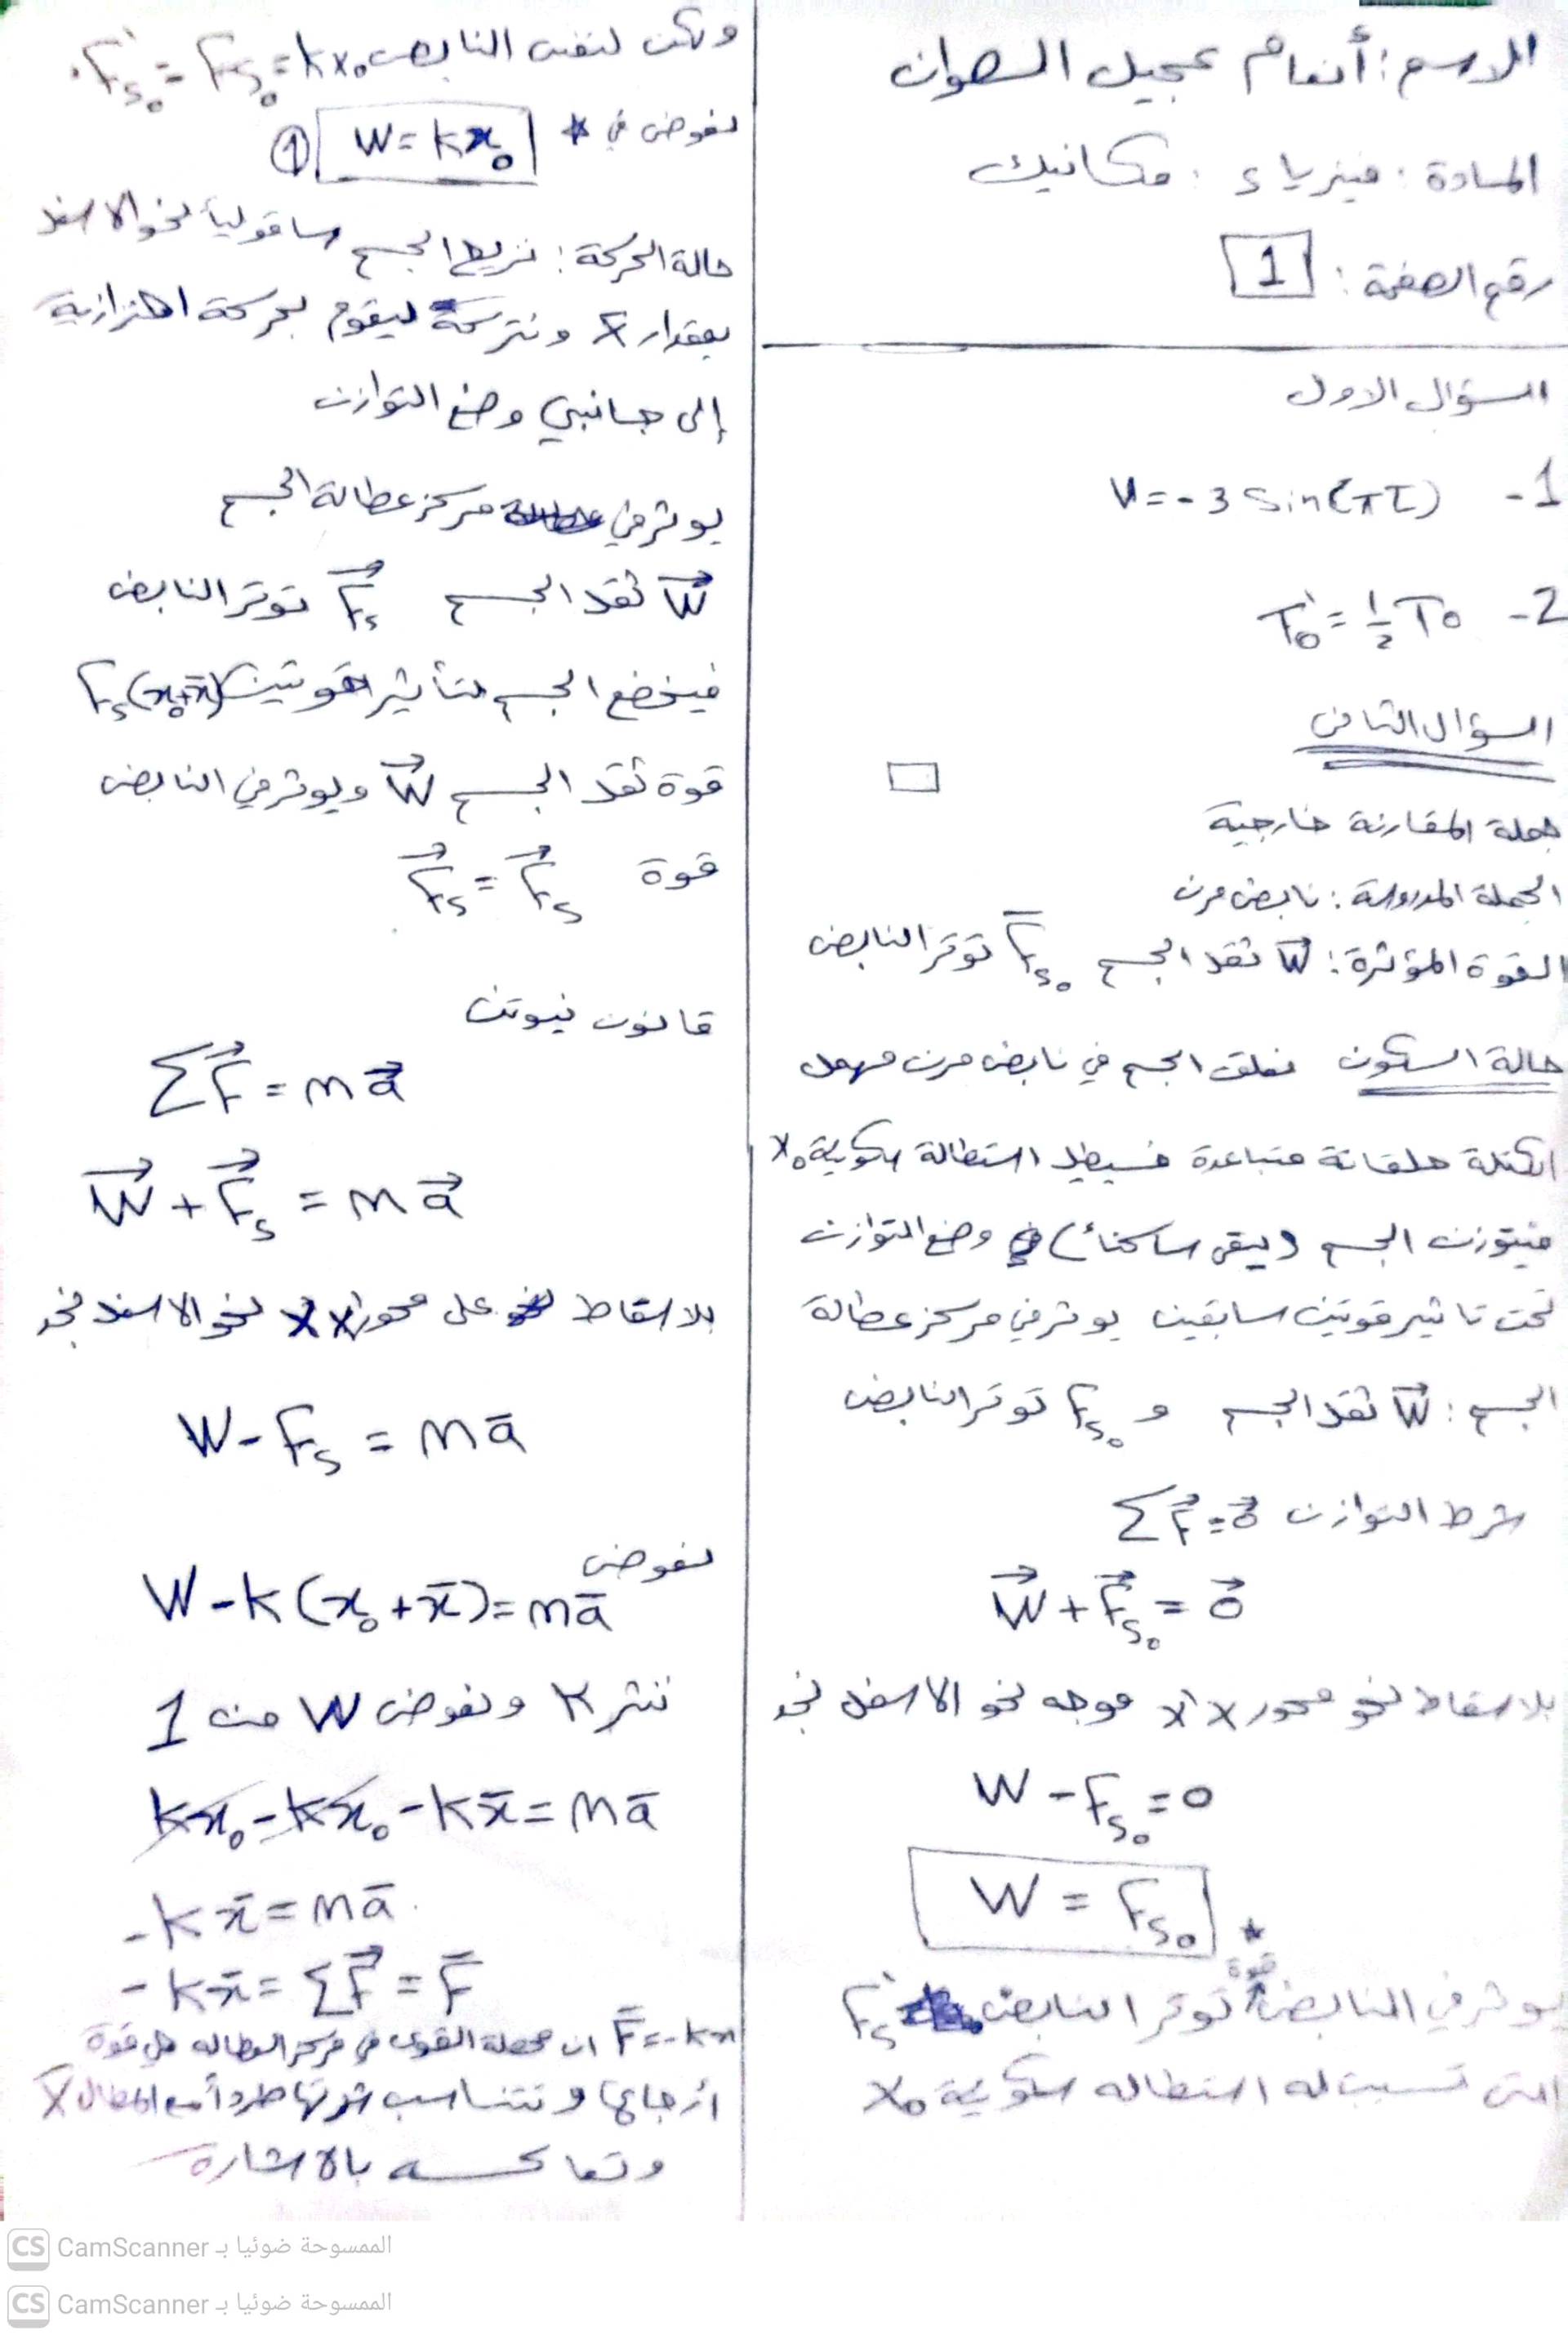 الاسم: أنعام عجيل الصوان
المادة: فيزياء: مكانيك
رقم الصفحة: 1
السؤال الاول
1- V=-3 Sin(πt)
2- T₀'=½T₀
السؤال الثاني
جملة المقارنة خارجية
الجملة المدروسة: نابض مرن
القوة المؤثرة: W ثقل الجسم Fs₀ توتر النابض
حالة السكون نعلق الجسم في نابض مرن مهمل
الكتلة حلقاته متباعدة فسيطيل استطالة سكونية x₀
فيتوزن الجسم (يبقى ساكناً) في وضع التوازن
تحت تاثير قوتين سابقين يوثر في مركز عطالة
الجسم: W ثقل الجسم و Fs₀ توتر النابض
شرط التوازن ΣF=0
W+Fs₀=0
بلاسقاط نحو محور x'x موجه نحو الاسفل نجد
W-Fs₀=0
W=Fs₀ *
يوثر في النابض قوة توتر النابض Fs'
التي تسبب له استطالة سكونية x₀
ولكن لنفس النابض Fs₀'=Fs₀=kx₀
نعوض في * W=kx₀ ①
حالة الحركة: نزيح الجسم ساقولياً نحو الاسفل
بمقدار x ونتركه ليقوم بحركة اهتزازية
إلى جانبي وضع التوازن
يوثر في مركز عطالة الجسم
W ثقل الجسم Fs توتر النابض
فيخضع الجسم لتأثير قوتين Fs(x₀+x̄)
قوة ثقل الجسم W ويوثر في النابض
قوة Fs=Fs
قانون نيوتن
ΣF=ma
W+Fs=ma
بلاسقاط على محور x'x نحو الاسفل نجد
W-Fs=mā
نعوض
W-k(x₀+x̄)=mā
ننشر k ونعوض W من 1
kx₀-kx₀-kx̄=mā
-kx̄=mā
-kx̄=ΣF=F̄
F̄=-kx ان محصلة القوى في مركز العطالة هي قوة
ارجاع و تتناسب شدتها طرداً مع المطال x̄
وتعاكسه بالاشارة
CS CamScanner الممسوحة ضوئيا بـ
CS CamScanner الممسوحة ضوئيا بـ